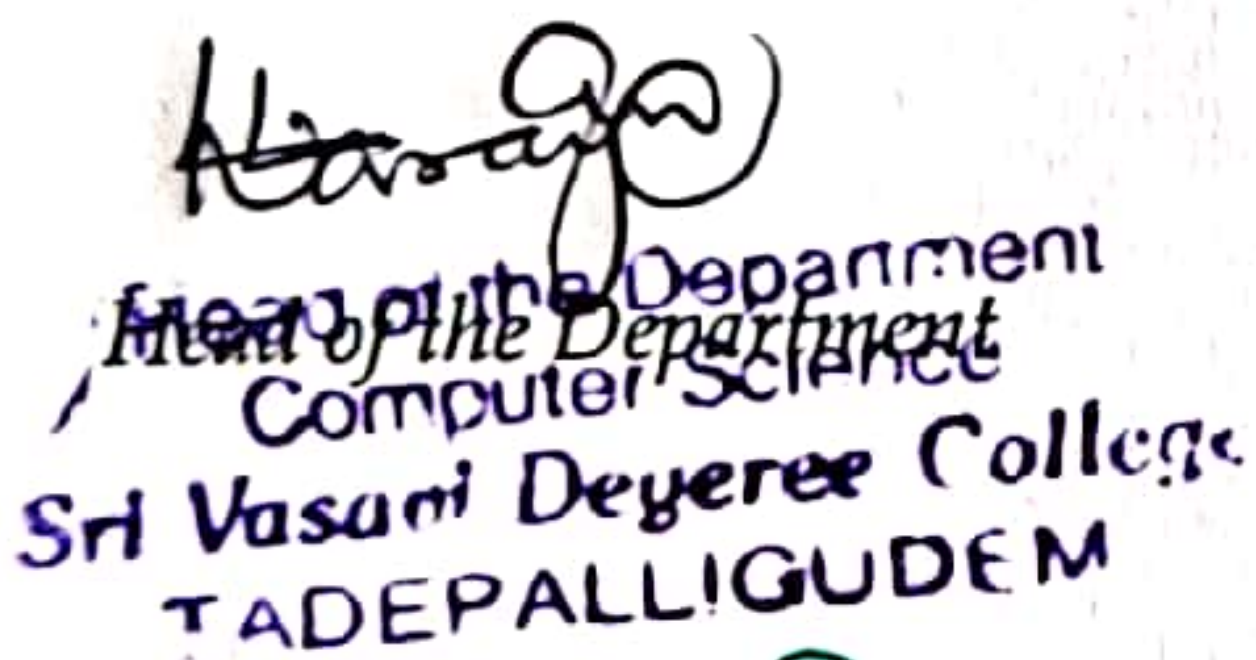 Head of the Department
Head of the Department
Computer Science
Sri Vasavi Deyeree College
TADEPALLIGUDEM